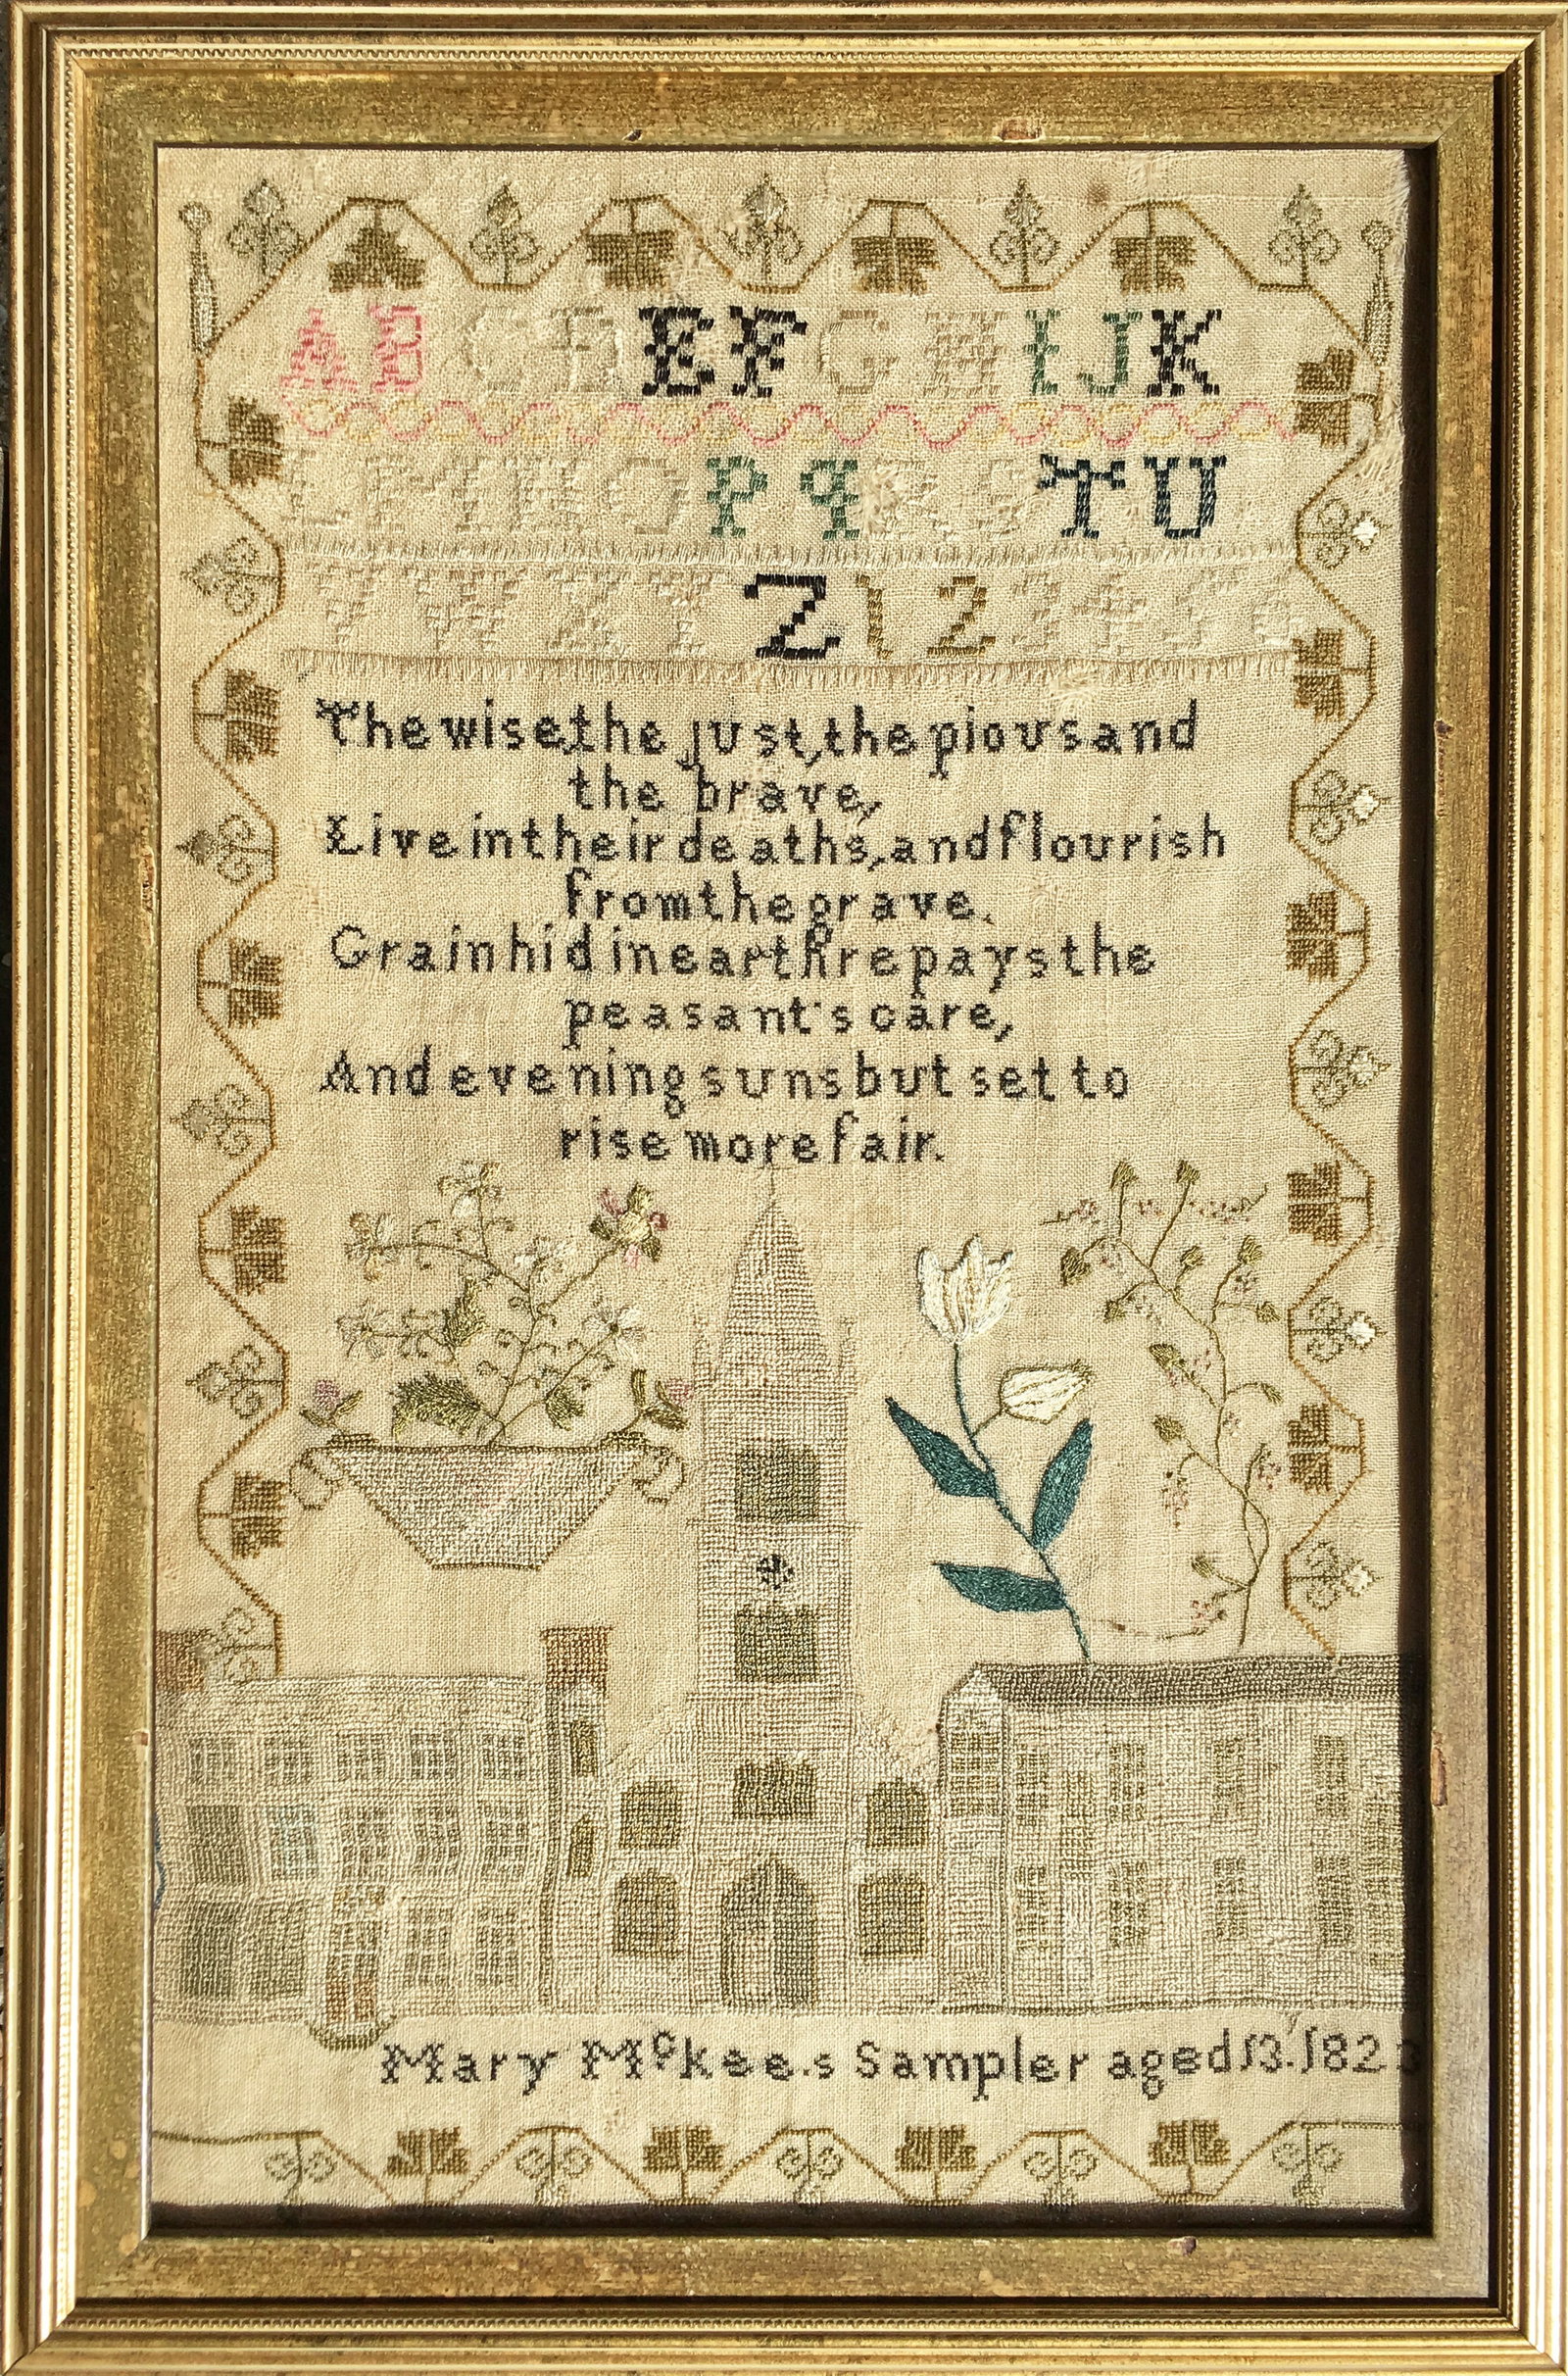 A B C D E F G H I J K
L M N O P q R S T U
V W X Y Z 1 2 3 4 5 6
The wise, the just, the piovs and
the brave,
Live in their deaths, and flovrish
from the grave.
Grain hid in earth repays the
peasant's care,
And evening svns bvt set to
rise more fair.
Mary Mckee.s Sampler aged 13. 1823